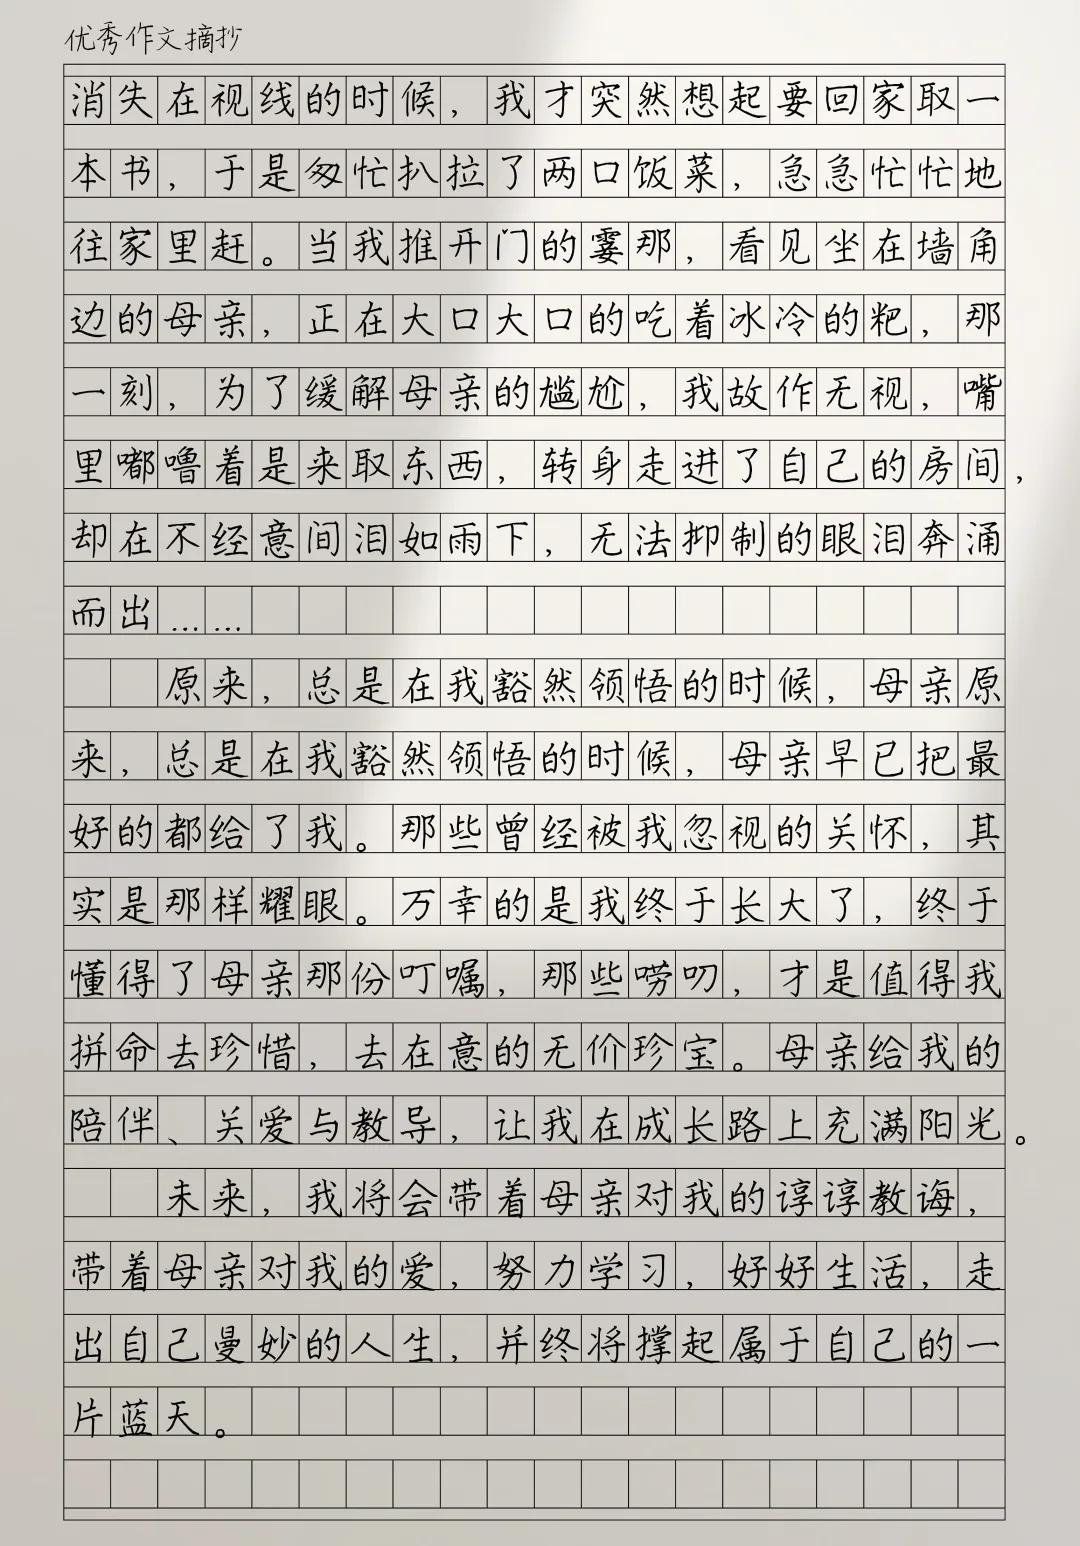 优秀作文摘抄
消失在视线的时候，我才突然想起要回家取一
本书，于是匆忙扒拉了两口饭菜，急急忙忙地
往家里赶。当我推开门的霎那，看见坐在墙角
边的母亲，正在大口大口的吃着冰冷的粑，那
一刻，为了缓解母亲的尴尬，我故作无视，嘴
里嘟噜着是来取东西，转身走进了自己的房间，
却在不经意间泪如雨下，无法抑制的眼泪奔涌
而出……
原来，总是在我豁然领悟的时候，母亲原
来，总是在我豁然领悟的时候，母亲早已把最
好的都给了我。那些曾经被我忽视的关怀，其
实是那样耀眼。万幸的是我终于长大了，终于
懂得了母亲那份叮嘱，那些唠叨，才是值得我
拼命去珍惜，去在意的无价珍宝。母亲给我的
陪伴、关爱与教导，让我在成长路上充满阳光。
未来，我将会带着母亲对我的谆谆教诲，
带着母亲对我的爱，努力学习，好好生活，走
出自己曼妙的人生，并终将撑起属于自己的一
片蓝天。